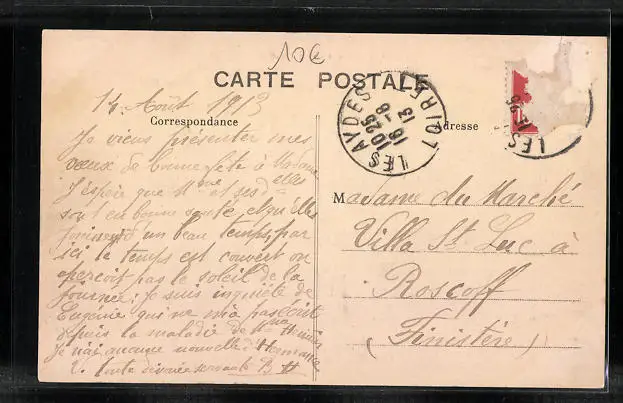 10€
CARTE POSTALE
14 Août 1913
Correspondance
Adresse
LES AYDES
LOIRET
10 25
18 - 8
13
LES
Je viens présenter mes
vœux de bonne fête à Madame
J'espère que Mme et ses delles
sont en bonne santé, et qu'elles
jouissent d'un beau temps, par
ici le temps est couvert on
aperçoit pas le soleil de la
journée; je suis inquiète de
Eugénie qui ne m'a pas écrit
depuis la maladie de Mme
Je n'ai aucune nouvelle d'Hermance
V. toute dévouée servante B H
Madame du Marché
Villa St Luc à
Roscoff
(Finistère)